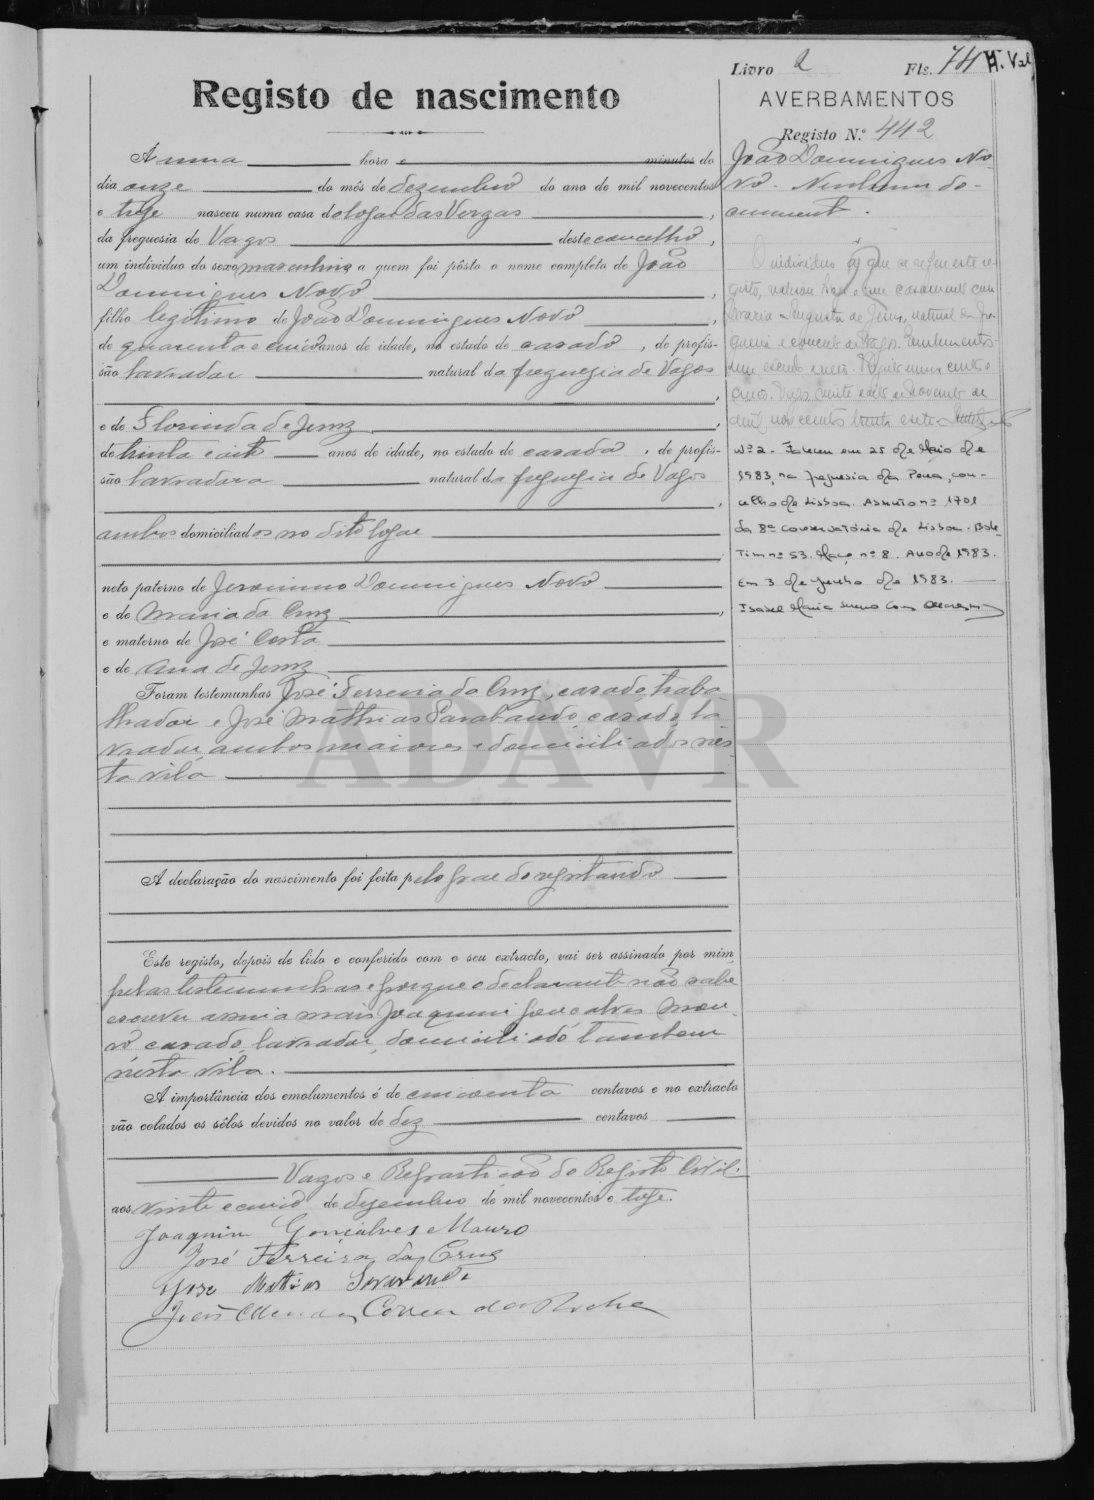 Livro 2 Fls. 74 H. Val
Registo de nascimento
AVERBAMENTOS
Registo N.º 442
Á uma hora e minutos do
dia onze do mês de dezembro do ano de mil novecentos
e treze nasceu numa casa do logar das Vergas,
da freguesia de Vagos deste concelho,
um individuo do sexo masculino a quem foi pôsto o nome completo de João
Domingues Novo,
filho legitimo de João Domingues Novo,
de quarenta e cinco anos de idade, no estado de casado, de profis-
são lavrador natural da freguezia de Vagos,
e de Florinda de Jesuz,
de trinta e oito anos de idade, no estado de casada, de profis-
são lavradora natural da freguezia de Vagos,
ambos domiciliados no dito logar
neto paterno de Jeronimo Domingues Novo
e de Maria da Cruz,
e materno de José Costa
e de Ana de Jesuz
Foram testemunhas José Ferreira da Cruz, casado, traba
lhador e José Mathias Sarabando, casado, la
vrador, ambos maiores e domiciliados nes
ta vila
A declaração do nascimento foi feita pelo pae do registando
Este registo, depois de lido e conferido com o seu extracto, vai ser assinado por mim,
pelas testemunhas e porque o declarante não sabe
escrever assina mais Joaquim Gonçalves Mou
ro casado, lavrador, domiciliado tambem
nesta vila.
A importância dos emolumentos é de cincoenta centavos e no extracto
vão colados os sêlos devidos no valor de dez centavos
Vagos e Repartição do Registo Civil.
aos vinte e cinco de dezembro de mil novecentos e treze.
Joaquim Gonçalves Mouro
José Ferreira da Cruz
José Mathias Sarabando
João Correia da Rocha
João Domingues No-
vo. Nenhum do-
cumento.
O individuo a que se refere este re-
gisto, casamento com
Maria Augusta de Jesus, natural da fre
guesia e concelho de Vagos.
um escudo
Vagos, vinte e de Novembro de
mil novecentos trinta e sete
Nº 2 - Faleceu em 25 de Maio de
1983, na freguesia da Pena, con-
celho de Lisboa. Assento nº 1701
da 8ª Conservatória de Lisboa. Bole
Tim nº 53. Maço nº 8. Ano de 1983.
Em 3 de Junho de 1983.
Isabel Maria
ADAVR